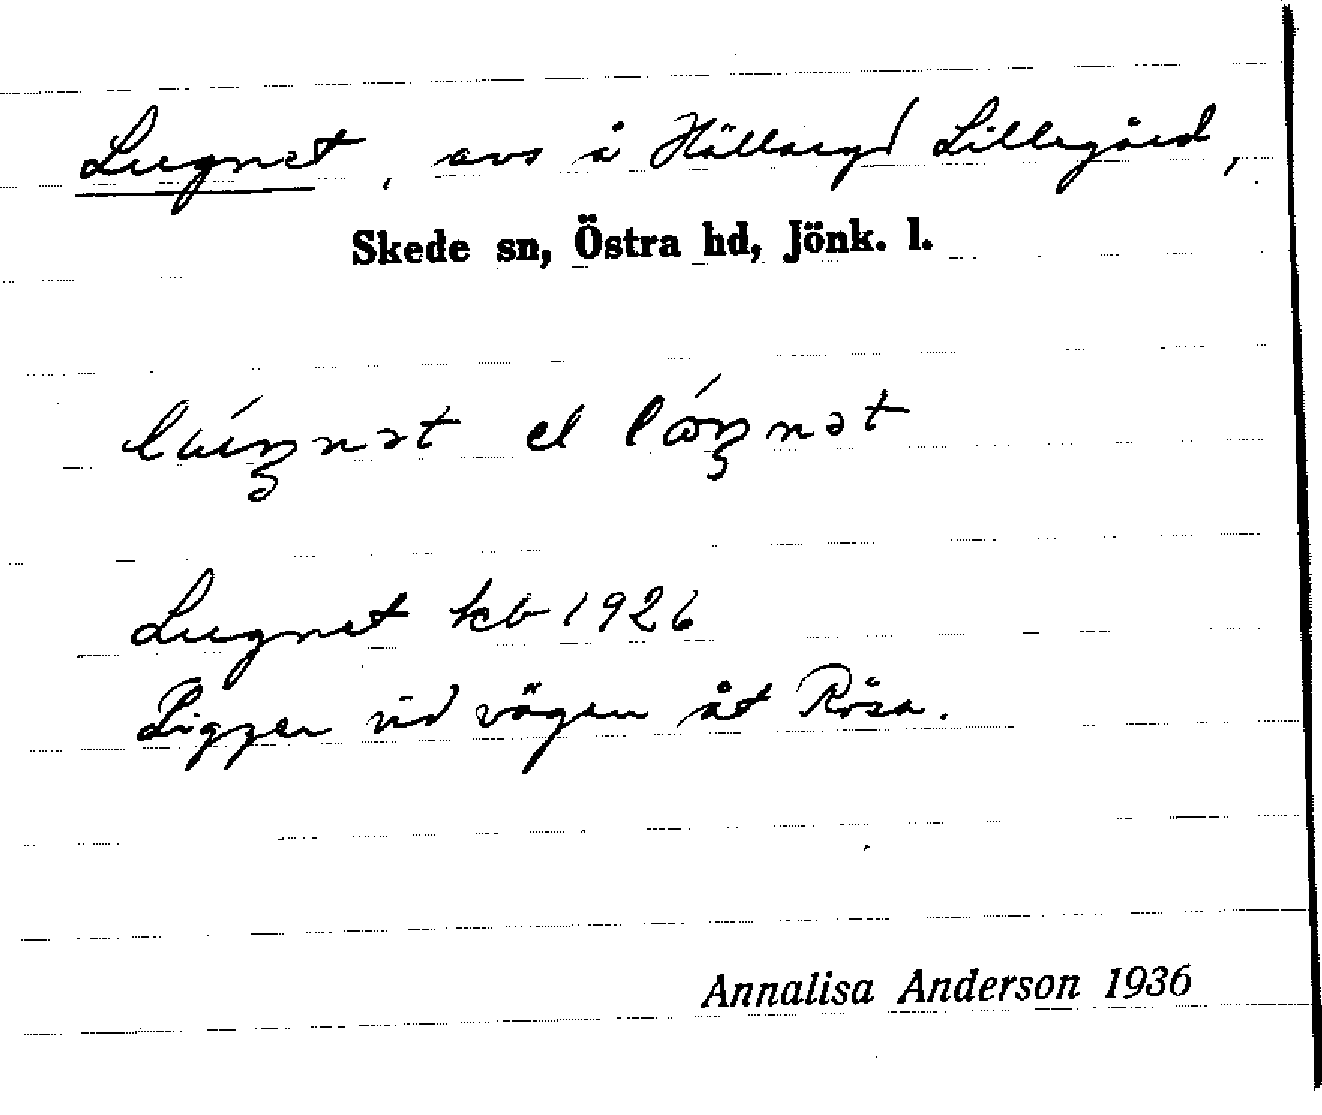 Lugnet, avs å Hållaryd Lillegård,
Skede sn, Östra hd, Jönk. l.
el
Lugnet kb 1926
Ligger vid vägen åt Rösa.
Annalisa Anderson 1936